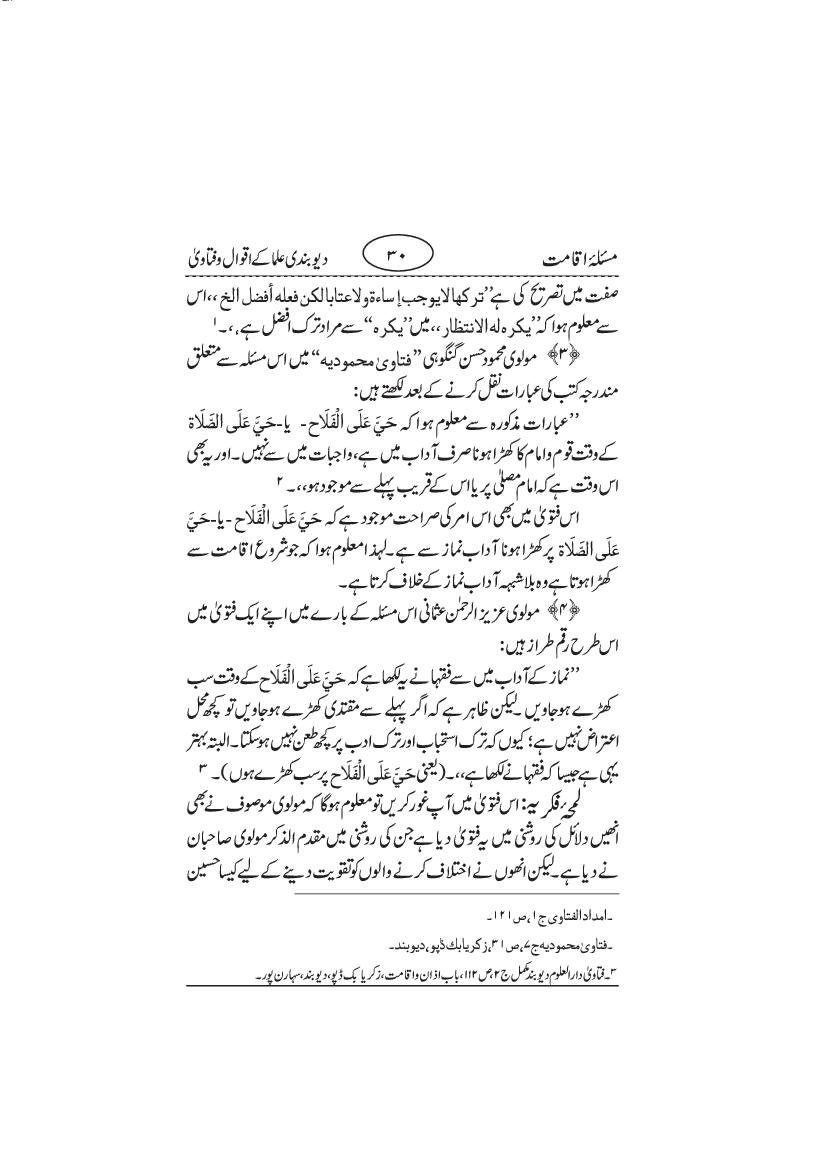 مسئلۂ اقامت ۳۰ دیوبندی علما کے اقوال و فتاویٰ
صفت میں تصریح کی ہے’’ترکھا لا یوجب إساءۃ ولا عتابا لکن فعلہ أفضل الخ ،،اس
سے معلوم ہوا کہ’’یکرہ لہ الانتظار،،میں’’یکرہ“ سے مراد ترک افضل ہے،،۔۱
﴿۳﴾ مولوی محمود حسن گنگوہی ”فتاویٰ محمودیہ“ میں اس مسئلہ سے متعلق
مندرجہ کتب کی عبارات نقل کرنے کے بعد لکھتے ہیں:
’’عبارات مذکورہ سے معلوم ہوا کہ حَيَّ عَلَی الْفَلَاح- یا-حَيَّ عَلَی الصَّلَاۃ
کے وقت قوم وامام کا کھڑا ہونا صرف آداب میں ہے، واجبات میں سے نہیں۔اور یہ بھی
اس وقت ہے کہ امام مصلیٰ پر یا اس کے قریب پہلے سے موجود ہو،،۔ ۲
اس فتویٰ میں بھی اس امر کی صراحت موجود ہے کہ حَيَّ عَلَی الْفَلَاح -یا-حَيَّ
عَلَی الصَّلَاۃ پر کھڑا ہونا آداب نماز سے ہے۔لہذا معلوم ہوا کہ جو شروع اقامت سے
کھڑا ہوتا ہے وہ بلا شبہہ آداب نماز کے خلاف کرتا ہے۔
﴿۴﴾ مولوی عزیز الرحمٰن عثمانی اس مسئلہ کے بارے میں اپنے ایک فتویٰ میں
اس طرح رقم طراز ہیں:
’’نماز کے آداب میں سے فقہا نے یہ لکھا ہے کہ حَيَّ عَلَی الْفَلَاح کے وقت سب
کھڑے ہو جاویں۔لیکن ظاہر ہے کہ اگر پہلے سے مقتدی کھڑے ہو جاویں تو کچھ محل
اعتراض نہیں ہے؛ کیوں کہ ترک استحباب اور ترک ادب پر کچھ طعن نہیں ہو سکتا۔البتہ بہتر
یہی ہے جیسا کہ فقہا نے لکھا ہے،،۔(یعنی حَيَّ عَلَی الْفَلَاح پر سب کھڑے ہوں)۔ ۳
لمحۂ فکریہ: اس فتویٰ میں آپ غور کریں تو معلوم ہوگا کہ مولوی موصوف نے بھی
انھیں دلائل کی روشنی میں یہ فتویٰ دیا ہے جن کی روشنی میں مقدم الذکر مولوی صاحبان
نے دیا ہے۔لیکن انھوں نے اختلاف کرنے والوں کو تقویت دینے کے لیے کیسا حسین
۔امداد الفتاوی ج۱،ص۱۲۱۔
۔فتاویٰ محمودیہ ج۷،ص۳۱،زکریا بك ڈپو،دیوبند۔
۳۔فتاویٰ دارالعلوم دیوبند مکمل ج۲،ص۱۱۲،باب اذان واقامت،زکریا بک ڈپو،دیوبند،سہارن پور۔